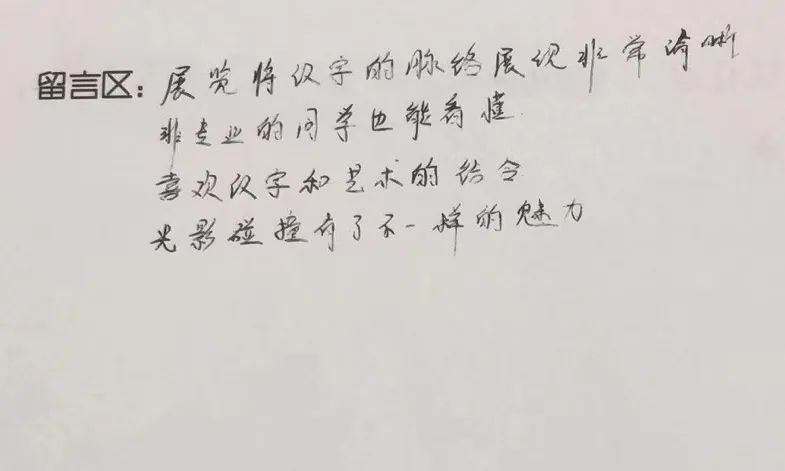 留言区：展览将汉字的脉络展现非常清晰
非专业的同学也能看懂.
喜欢汉字和艺术的结合
光影碰撞有了不一样的魅力